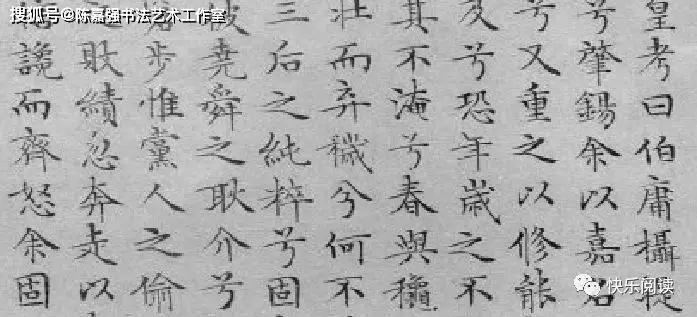 搜狐号@陈嘉强书法艺术工作室
皇考曰伯庸攝提
兮肇錫余以嘉名
兮又重之以修能
及兮恐年歲之不
其不淹兮春與穐
壯而弃穢兮何不
三后之純粹兮固
彼堯舜之耿介兮
步惟黨人之偷
敗績忽奔走以
讒而齊怒余固
快乐阅读